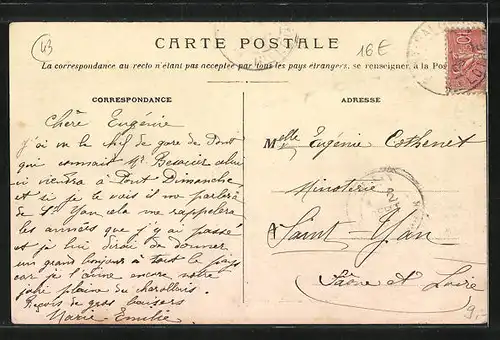 43
16E
CARTE POSTALE
La correspondance au recto n'étant pas acceptée par tous les pays étrangers, se renseigner, à la Pos
CORRESPONDANCE
ADRESSE
Chère Eugénie
J'ai vu le chef de gare de Dont
qui connait Mr celui
ci viendra à Dont Dimanche
et si je le vois il me parlera
de St Yan cela me rappellera
les années que j'y ai passé
et je lui dirai de donner
un grand bonjour à tout le pays
car je l'aime encore votre
jolie plaine du charollais.
Reçois de gros baisers
Marie Emilie
Melle Eugénie Cothenet
Minoterie
à Saint-Yan
Saône et Loire
9,-